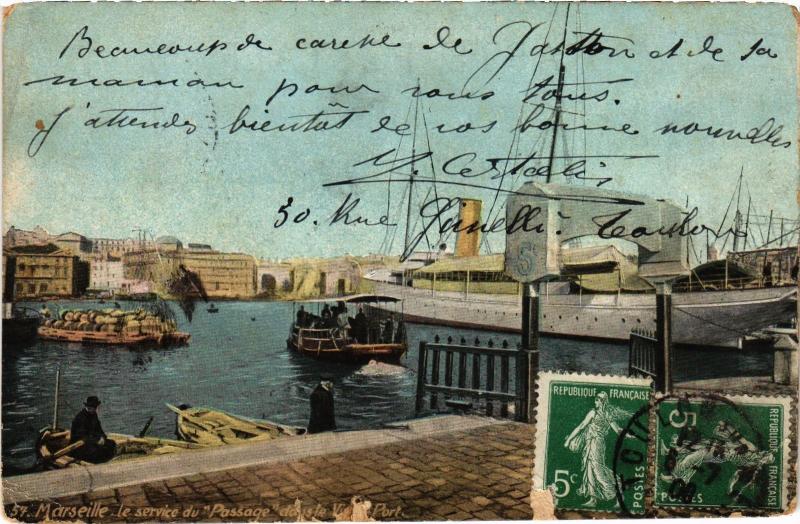 Beaucoup de caresse de Gaston et de sa
maman pour vous tous.
J'attends bientôt de vos bonne nouvelles
30. Rue Toulon
S
REPUBLIQUE FRANÇAISE
5c
POSTES
REPUBLIQUE FRANÇAISE
5c
POSTES
57. Marseille. le service du "Passage" dans le Port.